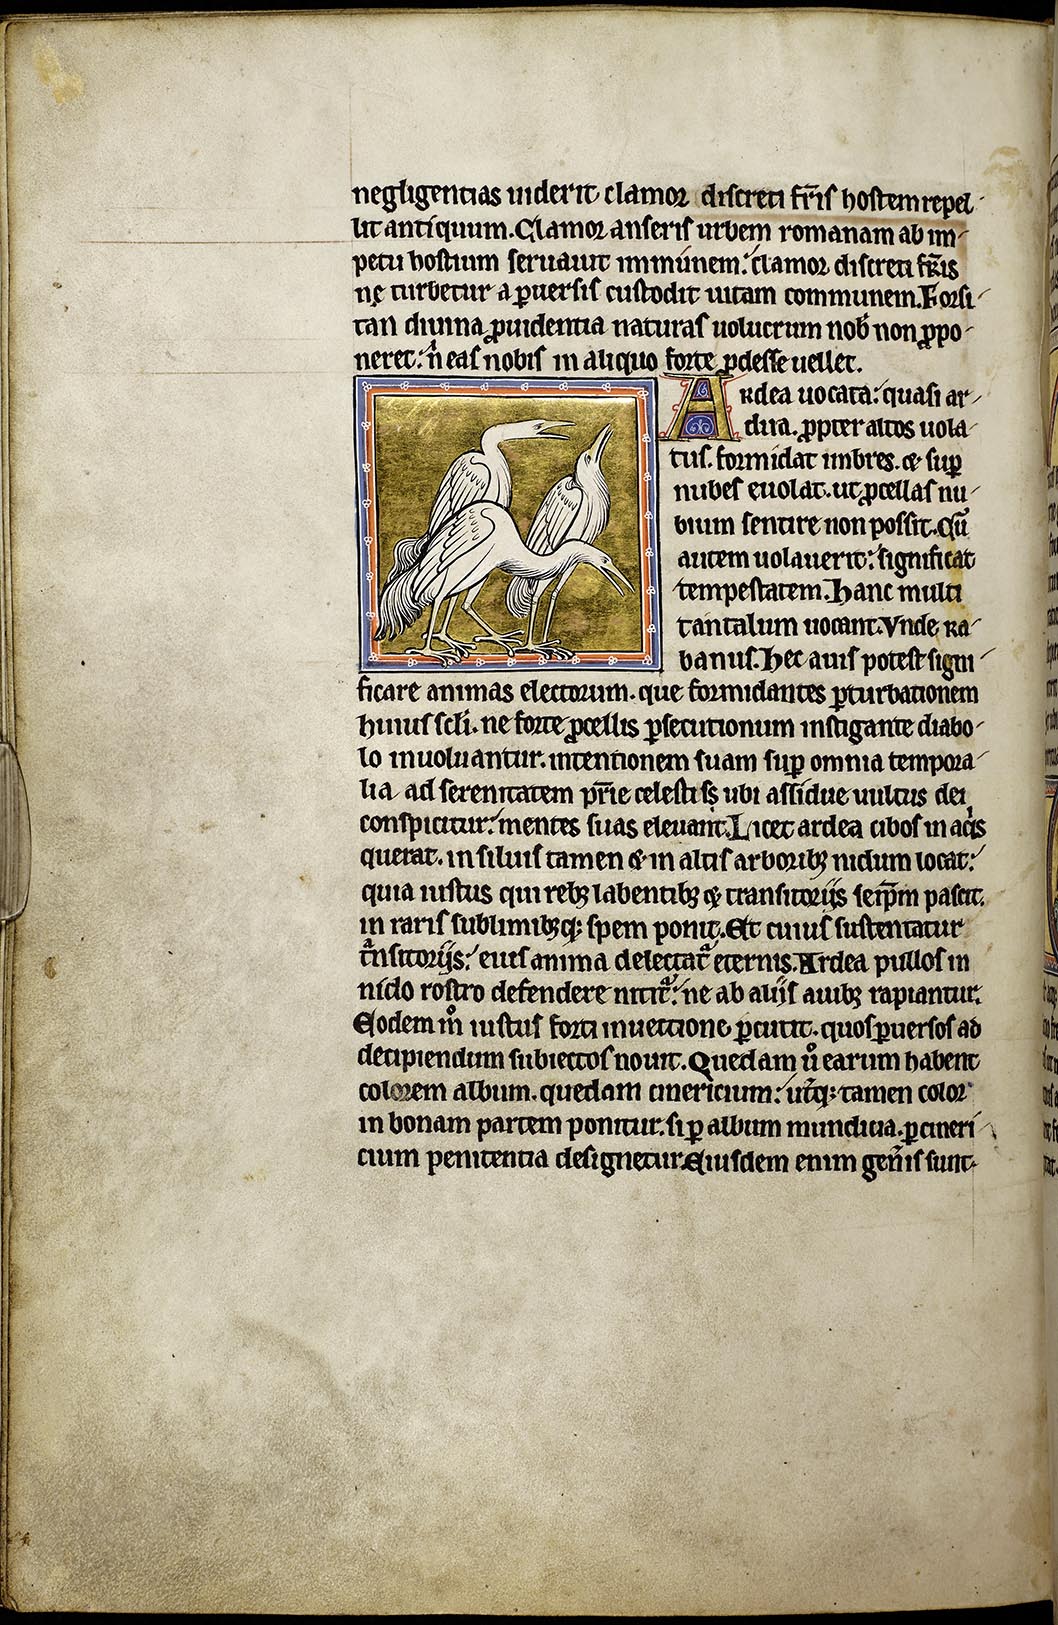 negligentias uiderit clamor discreti fr̄is hostem repel
lit antiquum. Clamor anseris urbem romanam ab im
petu hostium seruauit immunem: clamor discreti fr̄is
ne turbetur a ꝑuersis custodit uitam communem. Forsi
tan diuina ꝓuidentia naturas uolucrum nob̄ non ꝓpo
neret: n̄ eas nobis in aliquo forte ꝓdesse uellet.
Ardea uocata: quasi ar
dua. ꝓpter altos uola
tus. formidat imbres. & suꝑ
nubes euolat. ut ꝓcellas nu
bium sentire non possit. Cū
autem uolauerit: significat
tempestatem. Hanc multi
tantalum uocant. Vnde ra
banus. Hec auis potest signi
ficare animas electorum. que formidantes ꝑturbationem
huius scl̄i. ne forte ꝓcellis ꝑsecutionum instigante diabo
lo inuoluantur. intentionem suam suꝑ omnia tempora
lia ad serenitatem pr̄ie celestis ubi assidue uultus dei
conspicitur: mentes suas eleuant. Licet ardea cibos in aqis
querat. in siluis tamen & in altis arboribꝫ nidum locat:
quia iustus qui rebꝫ labentibꝫ & transitorijs semꝑ pascit.
in raris sublimibꝫqꝫ spem ponit. Et cuius sustentatur
tͣnsitorijs: eius anima delectatᷓ eternis. Ardea pullos in
nido rostro defendere nititᷓ: ne ab alijs auibꝫ rapiantur.
Eodem mͦ iustus forti inuectione ꝑcutit. quos ꝑuersos ad
decipiendum subiectos nouit. Quedam uͦ earum habent
colorem album. quedam cinericium: utᷓqꝫ tamen color
in bonam partem ponitur. si ꝑ album mundicia. ꝑ cineri
cium penitentia designetur. Eiusdem enim gen̄is sunt